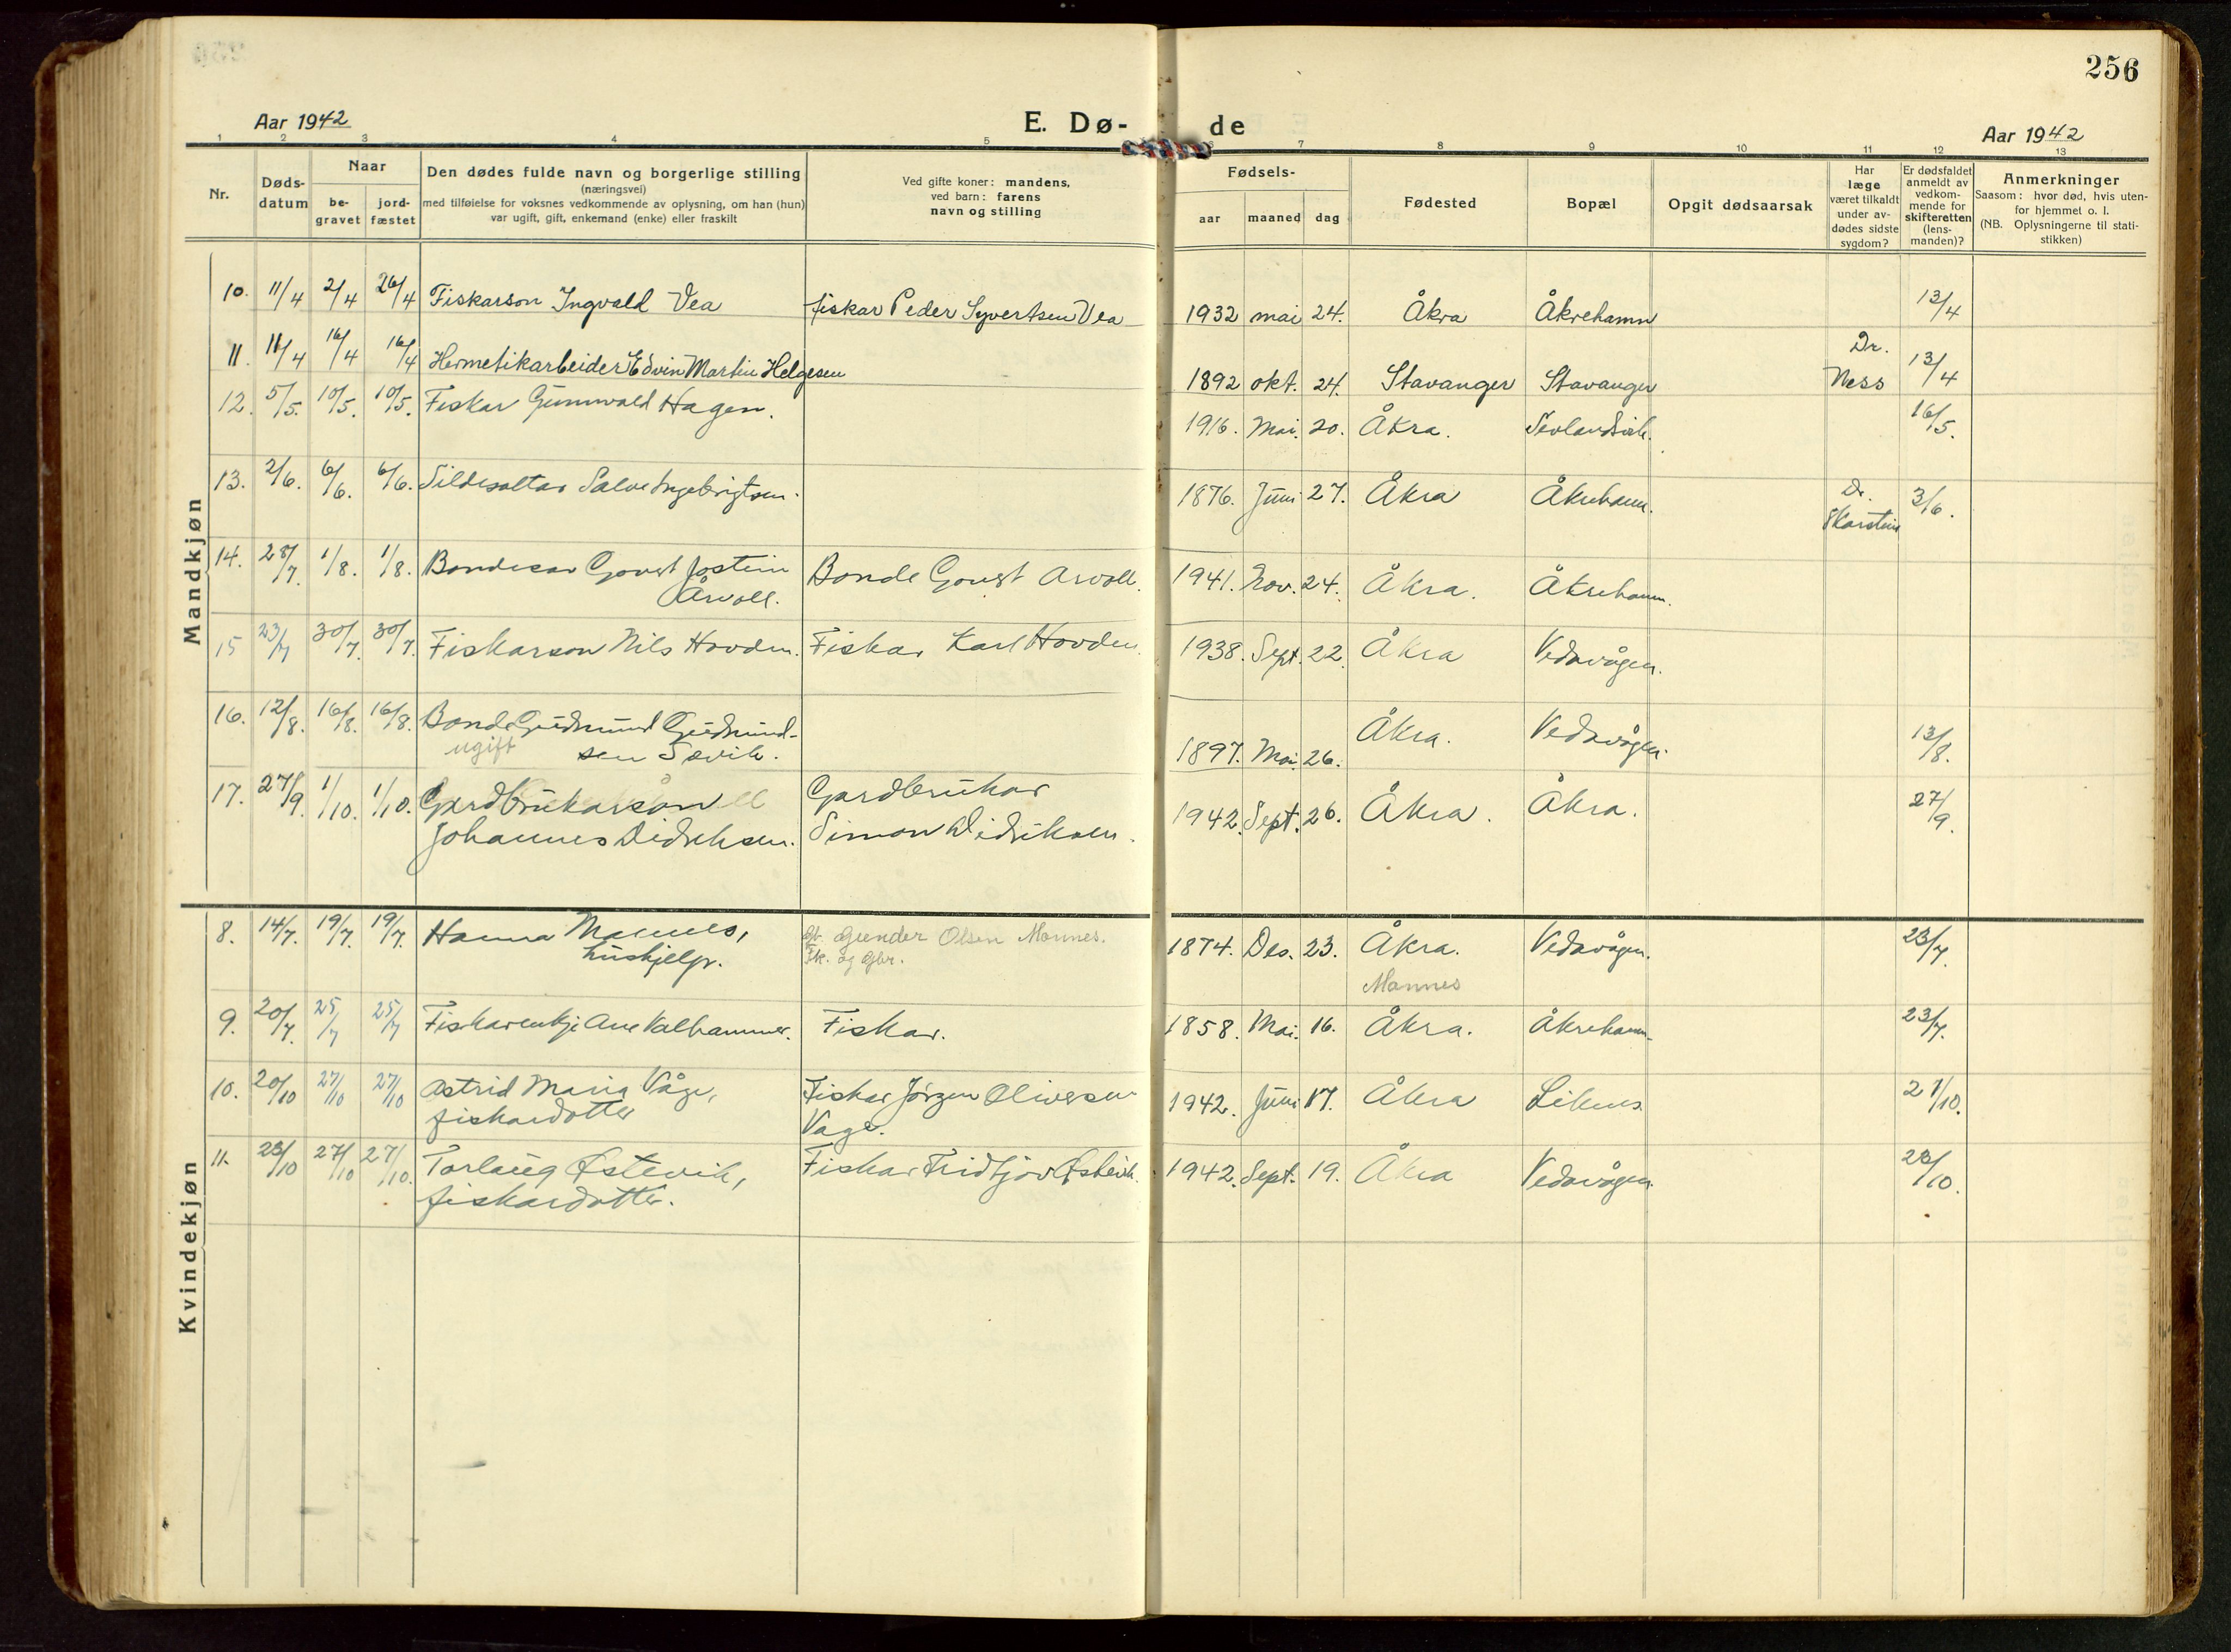 256
Aar 1942
E. Dø-
de
Aar 1942
1 2 3 4 5 6 7 8 9 10 11 12 13
Nr.
Døds-
datum
Naar
be-
gravet
jord-
fæstet
Den dødes fulde navn og borgerlige stilling
(næringsvei)
med tilføielse for voksnes vedkommende av oplysning, om han (hun)
var ugift, gift, enkemand (enke) eller fraskilt
Ved gifte koner: mandens,
ved barn: farens
navn og stilling
Fødsels-
aar
maaned
dag
Fødested
Bopæl
Opgit dødsaarsak
Har
læge
været tilkaldt
under av-
dødes sidste
sygdom?
Er dødsfaldet
anmeldt av
vedkom-
mende for
skifteretten
(lens-
manden)?
Anmerkninger
Saasom: hvor død, hvis uten-
for hjemmet o. l.
(NB. Oplysningerne til stati-
stikken)
Mandkjøn
10. 11/4 2/4 26/4 Fiskarson Ingvald Vea fiskar Peder Syvertsen Vea 1932 mai 24. Åkra Åkrehamn 13/4
11. 11/4 16/4 16/4 Hermetikarbeider Edvin Martin Helgesen 1892 okt. 24. Stavanger Stavanger Dr. 13/4
Ness
12. 5/5. 10/5. 10/5. Fiskar Gunnvald Hagen. 1916. Mai. 20. Åkra. Sevlandsvik. 16/5.
13. 2/6. 6/6. 6/6. Sildesaltar Salve Ingebrigtsen. 1876. Juni 27. Åkra Åkrehamn. Dr. 3/6.
Karstein
14. 28/7. 1/8. 1/8. Bondeson Goust Jostein Bonde Goust Arvoll. 1941. Nov. 24. Åkra. Åkrehamn.
Årvoll.
15 23/7 30/7. 30/7. Fiskarson Nils Hovden. Fiskar Karl Hovden. 1938. Sept. 22. Åkra Vedavågen.
16. 12/8. 16/8. 16/8. Bonde Gudmund Gudmund- 1897. Mai. 26. Åkra. Vedavågen. 13/8.
ugift sen Sævik.
17. 27/9. 1/10. 1/10. Gardbrukarson Gardbrukar 1942. Sept. 26. Åkra. Åkra. 27/9.
Johannes Didriksen. Simon Didriksen.
Kvindekjøn
8. 14/7. 19/7. 19/7. Hanna Mannes, Gunder Olsen Mannes. 1874. Des. 23. Åkra. Vedavågen. 23/7.
hushjelp. Fk. og Gbr. Mannes
9. 20/7. 25/7 25/7 Fiskarenkje Ane Valhammer. Fiskar. 1858. Mai. 16. Åkra. Åkrehamn. 23/7.
10. 20/10 27/10 27/10 Astrid Maria Våge, Fiskar Jørgen Oliversen 1942. Juni 17. Åkra Liknes 21/10.
fiskardotter Vage.
11. 23/10 27/10 27/10. Torlaug Østevik, Fiskar Fridtjov Østevik. 1942. Sept. 19. Åkra Vedavågen. 28/10.
fiskardotter.